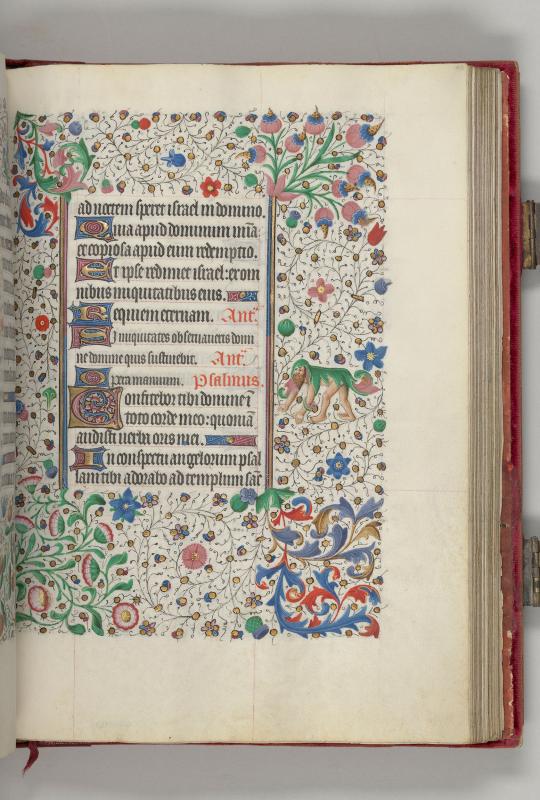 ad noctem speret israel in domino.
Quia apud dominum mīa:
et copiosa apud eum redemptio.
Et ipse redimet israel: ex om
nibus iniquitatibus eius.
Requiem eternam. Anť.
Si iniquitates obseruaueris domi
ne domine quis sustinebit. Anť.
Opera manuum. Psalmus.
Confitebor tibi domine ī
toto corde meo: quoniā
audisti uerba oris mei.
In conspectu angelorum psal
lam tibi adorabo ad templum sāc